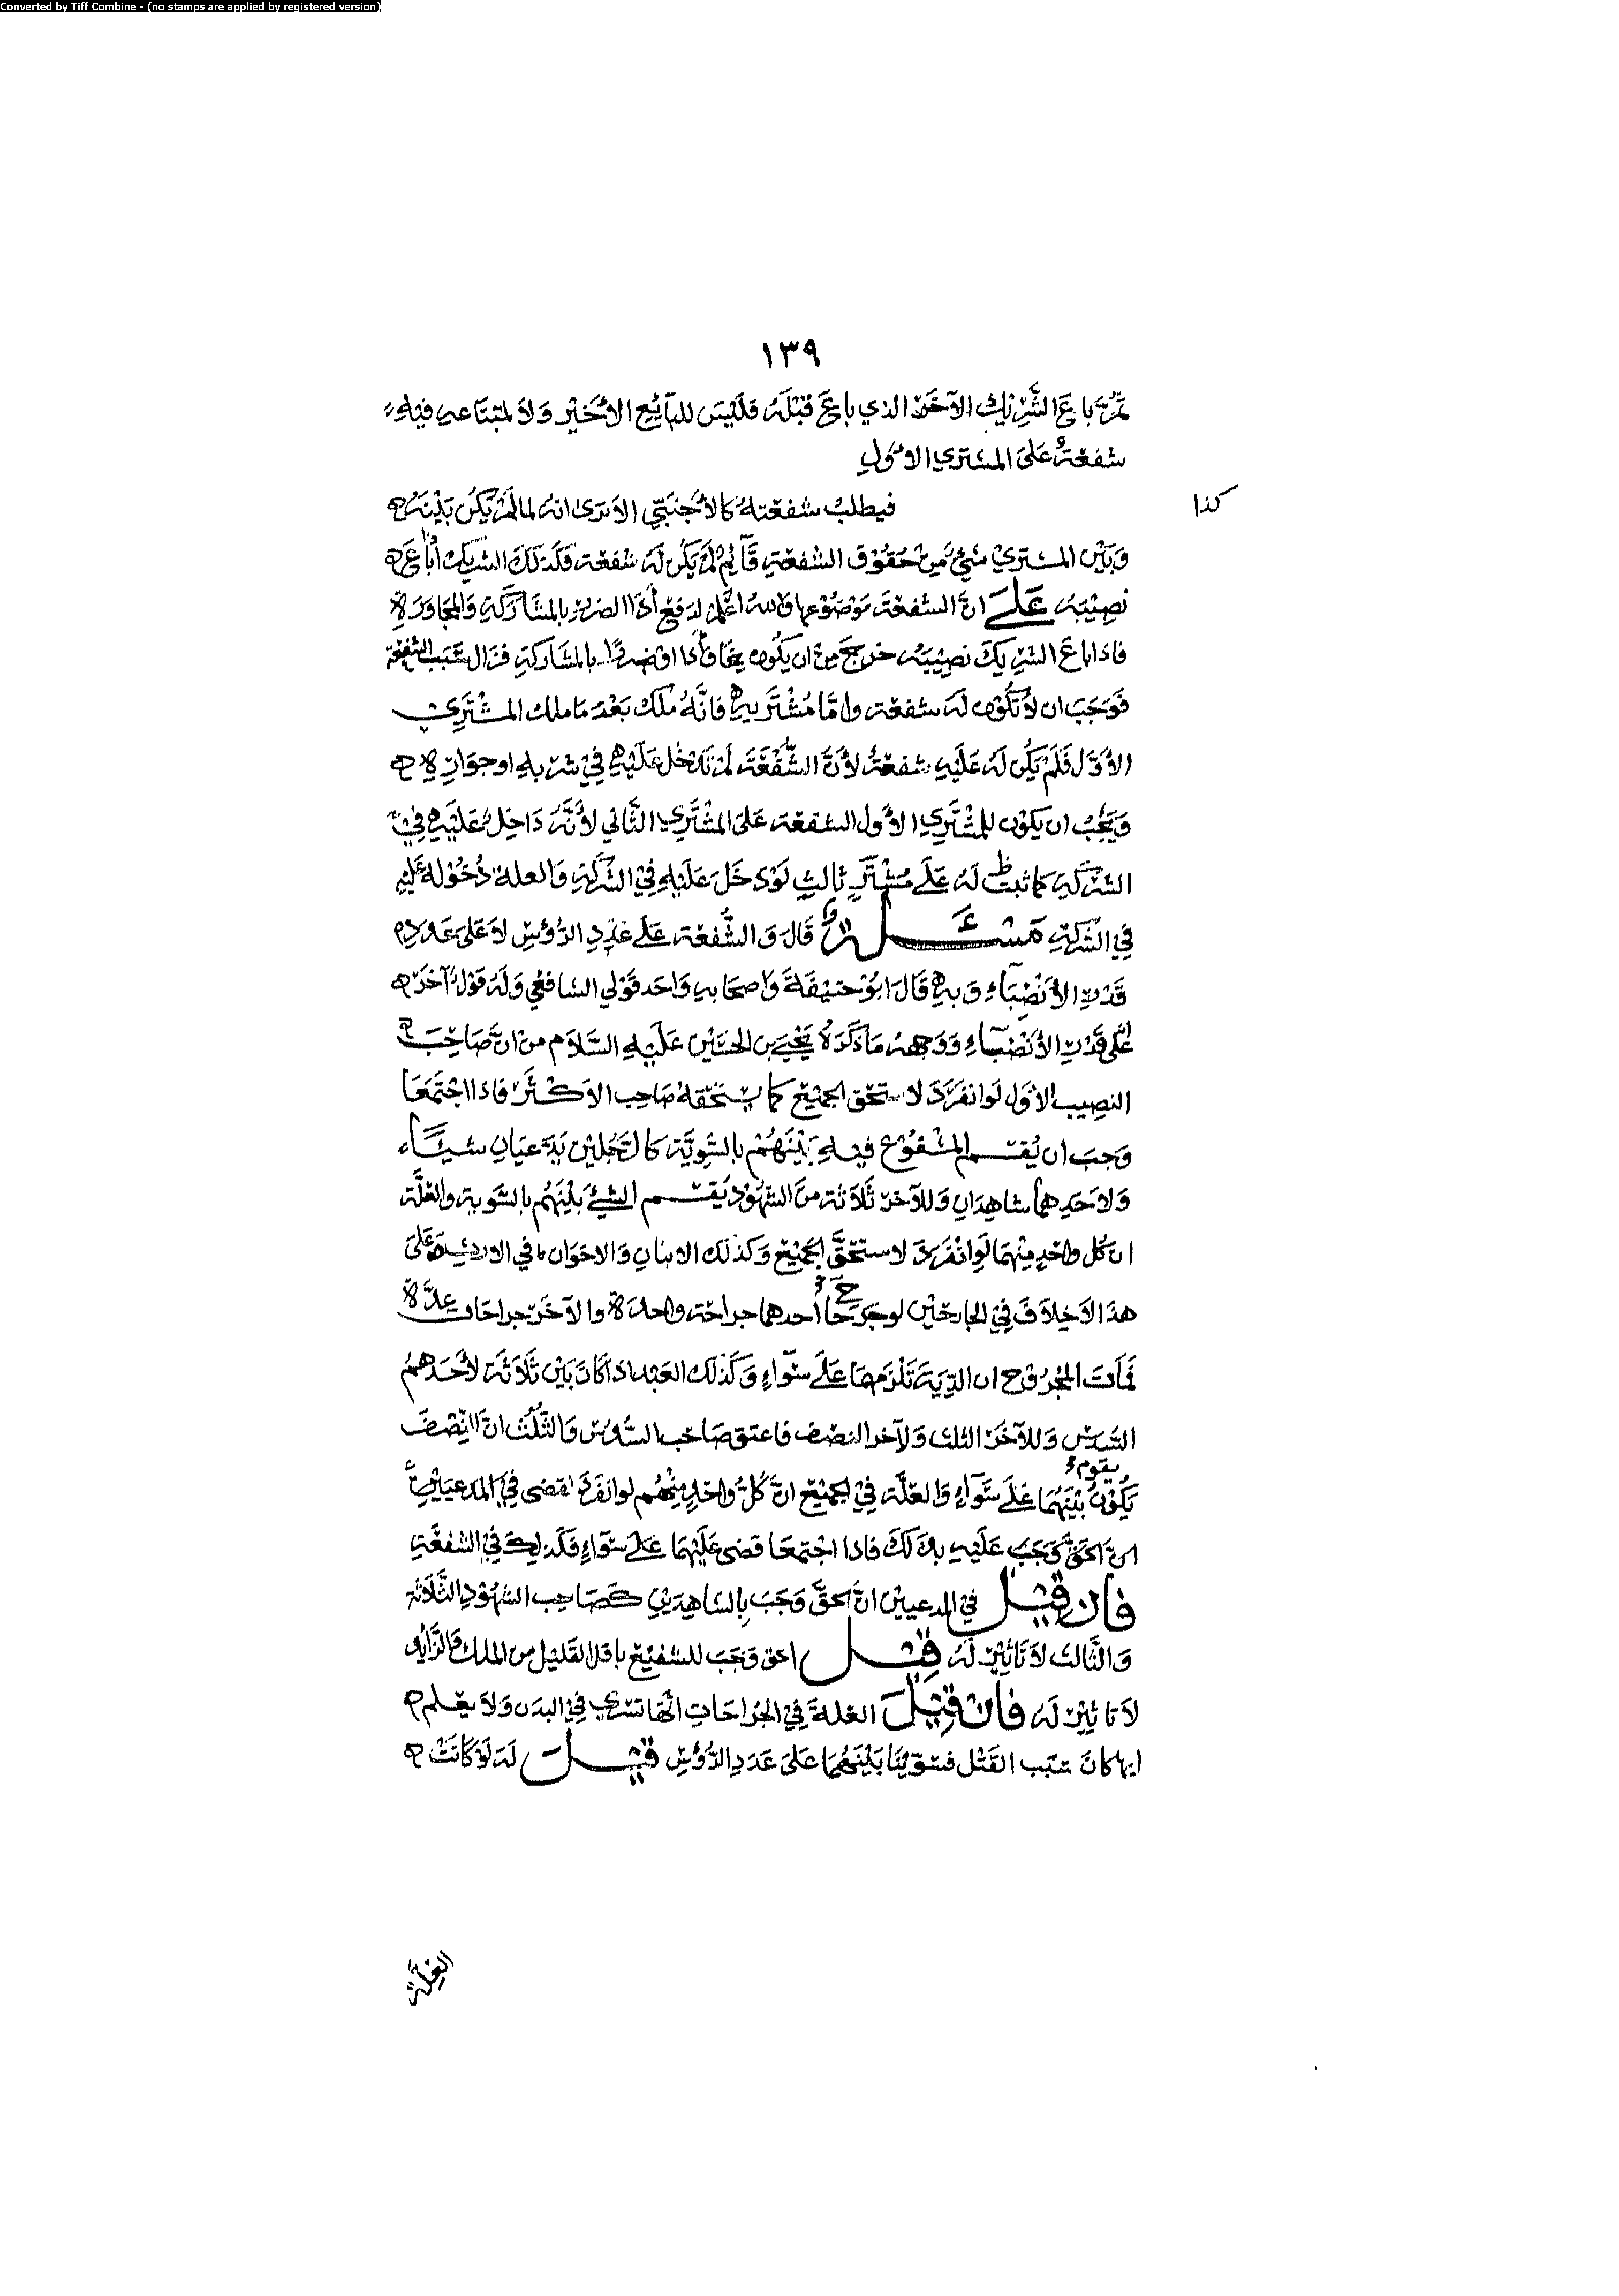 Converted by Tiff Combine - (no stamps are applied by registered version)
١٣٩
ثُمَّ باعَ الشَّرِيْكُ الآخَر الذي باعَ قَبْلَهُ فَلَيْسَ للبَآئِع الأخيْرِ وَلاَ لمبتَاعه فيهِ
شفعَةٌ عَلىَ المشتري الاوَّلِ
كذا
فيطلبُ شفعَتهُ كالأَجْنَبيِّ الاَ ترىَ انهُ لما لَمْ يَكُن بَيْنَهُ
وَبَيْن المشتريْ شيءٌ مِنْ حُقُوْق الشفعَةِ قَآئِمٌ لَمْ يَكُن لَهُ شفعَة فَكَذلَكَ الشريك اذا بَاعَ
نصِيْبَهُ عَلىَ انَّ الشفعَةَ مَوْضُوْعها واللهُ اعْلم لدفعِ أذَا الضررِ بالمشَارَكَةِ وَالمجَاوَرَةِ
فاذا باعَ الشرِيكُ نصِيْبَهُ خرجَ مِنْ ان يَكُون يخَافُ أذًا او ضررًا بالمشَاركَةِ فزَال سَبَب الشفعَة
فَوَجَبَ ان لاَ تَكُوْن لَهُ شفعَة وامَّا مُشْتَريهِ فَانَّهُ مَلَكَ بَعْدَ مَا ملك المشْتَرِي
الأَوَّل فَلَم يَكُن لَهُ عَلَيْهِ شفعَةٌ لأَنَّ الشُّفْعَةَ لمْ تدْخُل عَلَيْهِ فيْ شرْبهِ او جوَارِهِ
وَيَجبُ ان يَكُوْن للمُشْتَرِي الأَول الشفعَة عَلىَ المشْتَرِي الثَّاني لأَنَّهُ دَاخِلٌ عَلَيْهِ فيْ
الشرْكَةِ كمَا ثبت لَهُ عَلَى مُشْتَرٍ ثالثٍ لَوْ دَخَلَ عَلَيْهِ فيْ الشَّرْكَةِ وَالعلة دُخُوْلهُ عَلَيْهِ
في الشَّرْكَةِ مَسْئَلةٌ قَالَ وَالشُّفعَة عَلَى عَدَدِ الرُّؤُسِ لاَ عَلىَ عَدَدِ
قَدْرِ الأَنْصِبَآءِ وَبهِ قَالَ ابُوْ حَنيْفَةَ وَاصحَابه وَاحَد قَوْلي الشافعي وَلَهُ قَوْلٌ آخَرَ
عَلى قَدْرِ الأَنْصبَآءِ وَوَجهُهُ مَا ذَكَرَهُ يَحْيَى بن الحسَيْن عَلَيْهِ السَّلاَم من انَّ صَاحِبَ
النصِيب الأوَل لَو انفَرَدَ لاستحق الجَمِيْع كما يستحَقّهُ صَاحِب الاَكْثَر فَاذَا اجْتَمَعَا
وَجَبَ ان يُقْسَم المشْفُوْع فيهِ بَيْنَهُمْ بالسَّوِيَّة كالرَّجُلَيْن يَدَّعِيَانِ شيْئًا
وَلاَحَدِهمَا شاهِدَانِ وَللآخَر ثَلاَثَةٌ منَ الشهُوْد يُقْسَم الشيْءُ بَيْنَهُم بالسَّويةِ وَالعِلَّة
ان كُل واحِدٍ مِنْهمَا لَوِ انْفَرَدَ لاستَحَقَّ الجَمِيْعَ وَكَذلك الابنَانِ وَالاخوَان في الارث وعَلىَ
هذَا الاَ خِلاَفَ فِيْ الجارِحَيْن لو جَرَحَا أحدهمَا جراحَة واحدَة والآخَر جراحَات عِدَّة
فَمَاتَ المجْرُوْح ان الدِّيَةَ تَلْزَمهمَا عَلىَ سَوَآءٍ وَكَذلك العَبْد اذا كَانَ بَيْن ثَلاَثَة لأَحَدهم
السُّدس وَللآخَر الثلث وَلآخر النصْف فاعتق صَاحب السُّدس وَالثُّلُث انَّ النِّصْفَ
يقوم
يَكُوْنُ بَيْنَهُمَا عَلىَ سَوَآءٍ وَالعِلَّة فِيْ الجَمِيْع انَّ كُلَّ وَاحِدٍ مِنْهُم لو انفَرَدَ لقضى فِيْ المدعيَيْنِ
انَّ الحَقَّ وَجَبَ عَلَيهِ بذَلكَ فاذا اجتَمَعَا قضى عَلَيْهمَا عَلىَ سَوَآءٍ فَكَذلك فِيْ الشفعَةِ
فَان قِيْلَ في المدعيين انَّ الحَقَّ وَجَبَ بالشاهِدَيْنِ كصَاحِب الشهُوْدِ الثَّلاَثَة
وَالثَّالث لاَ تَاثِيْر لَهُ قِيْل احق وَجَبَ للشَّفيْع باقل القَليْل من الملك وَالزَّايد
لاَ تَاثِيْر لَهُ فَان قِيْلَ العلةَ فِيْ الجرَاحَاتِ انهَا تسري فِيْ البدَن وَلاَ يعْلم
ايها كانَ سَبَب القَتْل فسَوّيْنَا بَيْنَهُمَا عَلىَ عَدَدِ الرُّؤُسِ قِيْلَ لَهُ لَوْ كَانَتْ
العِلَّة